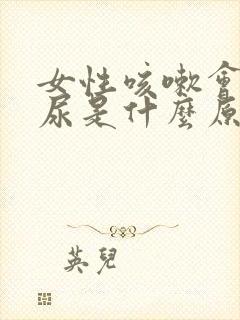 女性咳嗽會
尿是什麼原
英兒